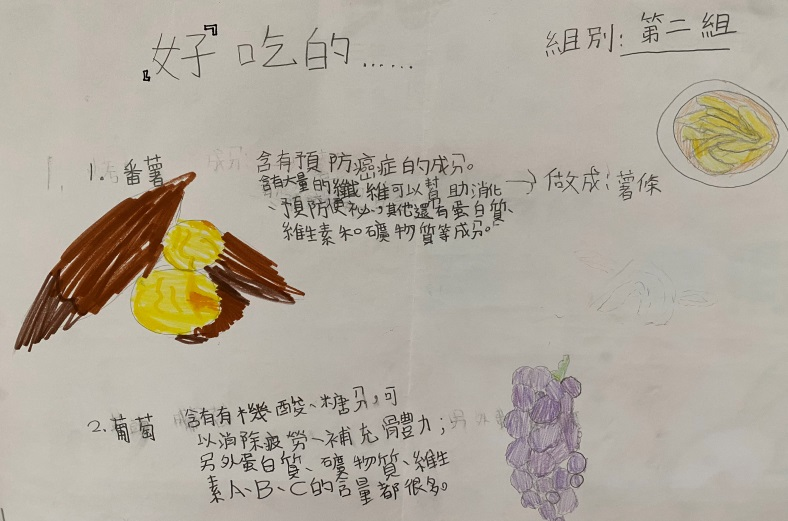 『好』吃的……
組別:第二組
1.番薯
含有預防癌症的成分。
含有大量的纖維可以幫助消化
、預防便祕,其他還有蛋白質、
維生素和礦物質等成分。
→做成:薯條
2.葡萄
含有有機酸、糖分,可
以消除疲勞、補充體力;
另外蛋白質、礦物質、維生
素A、B、C的含量都很多。